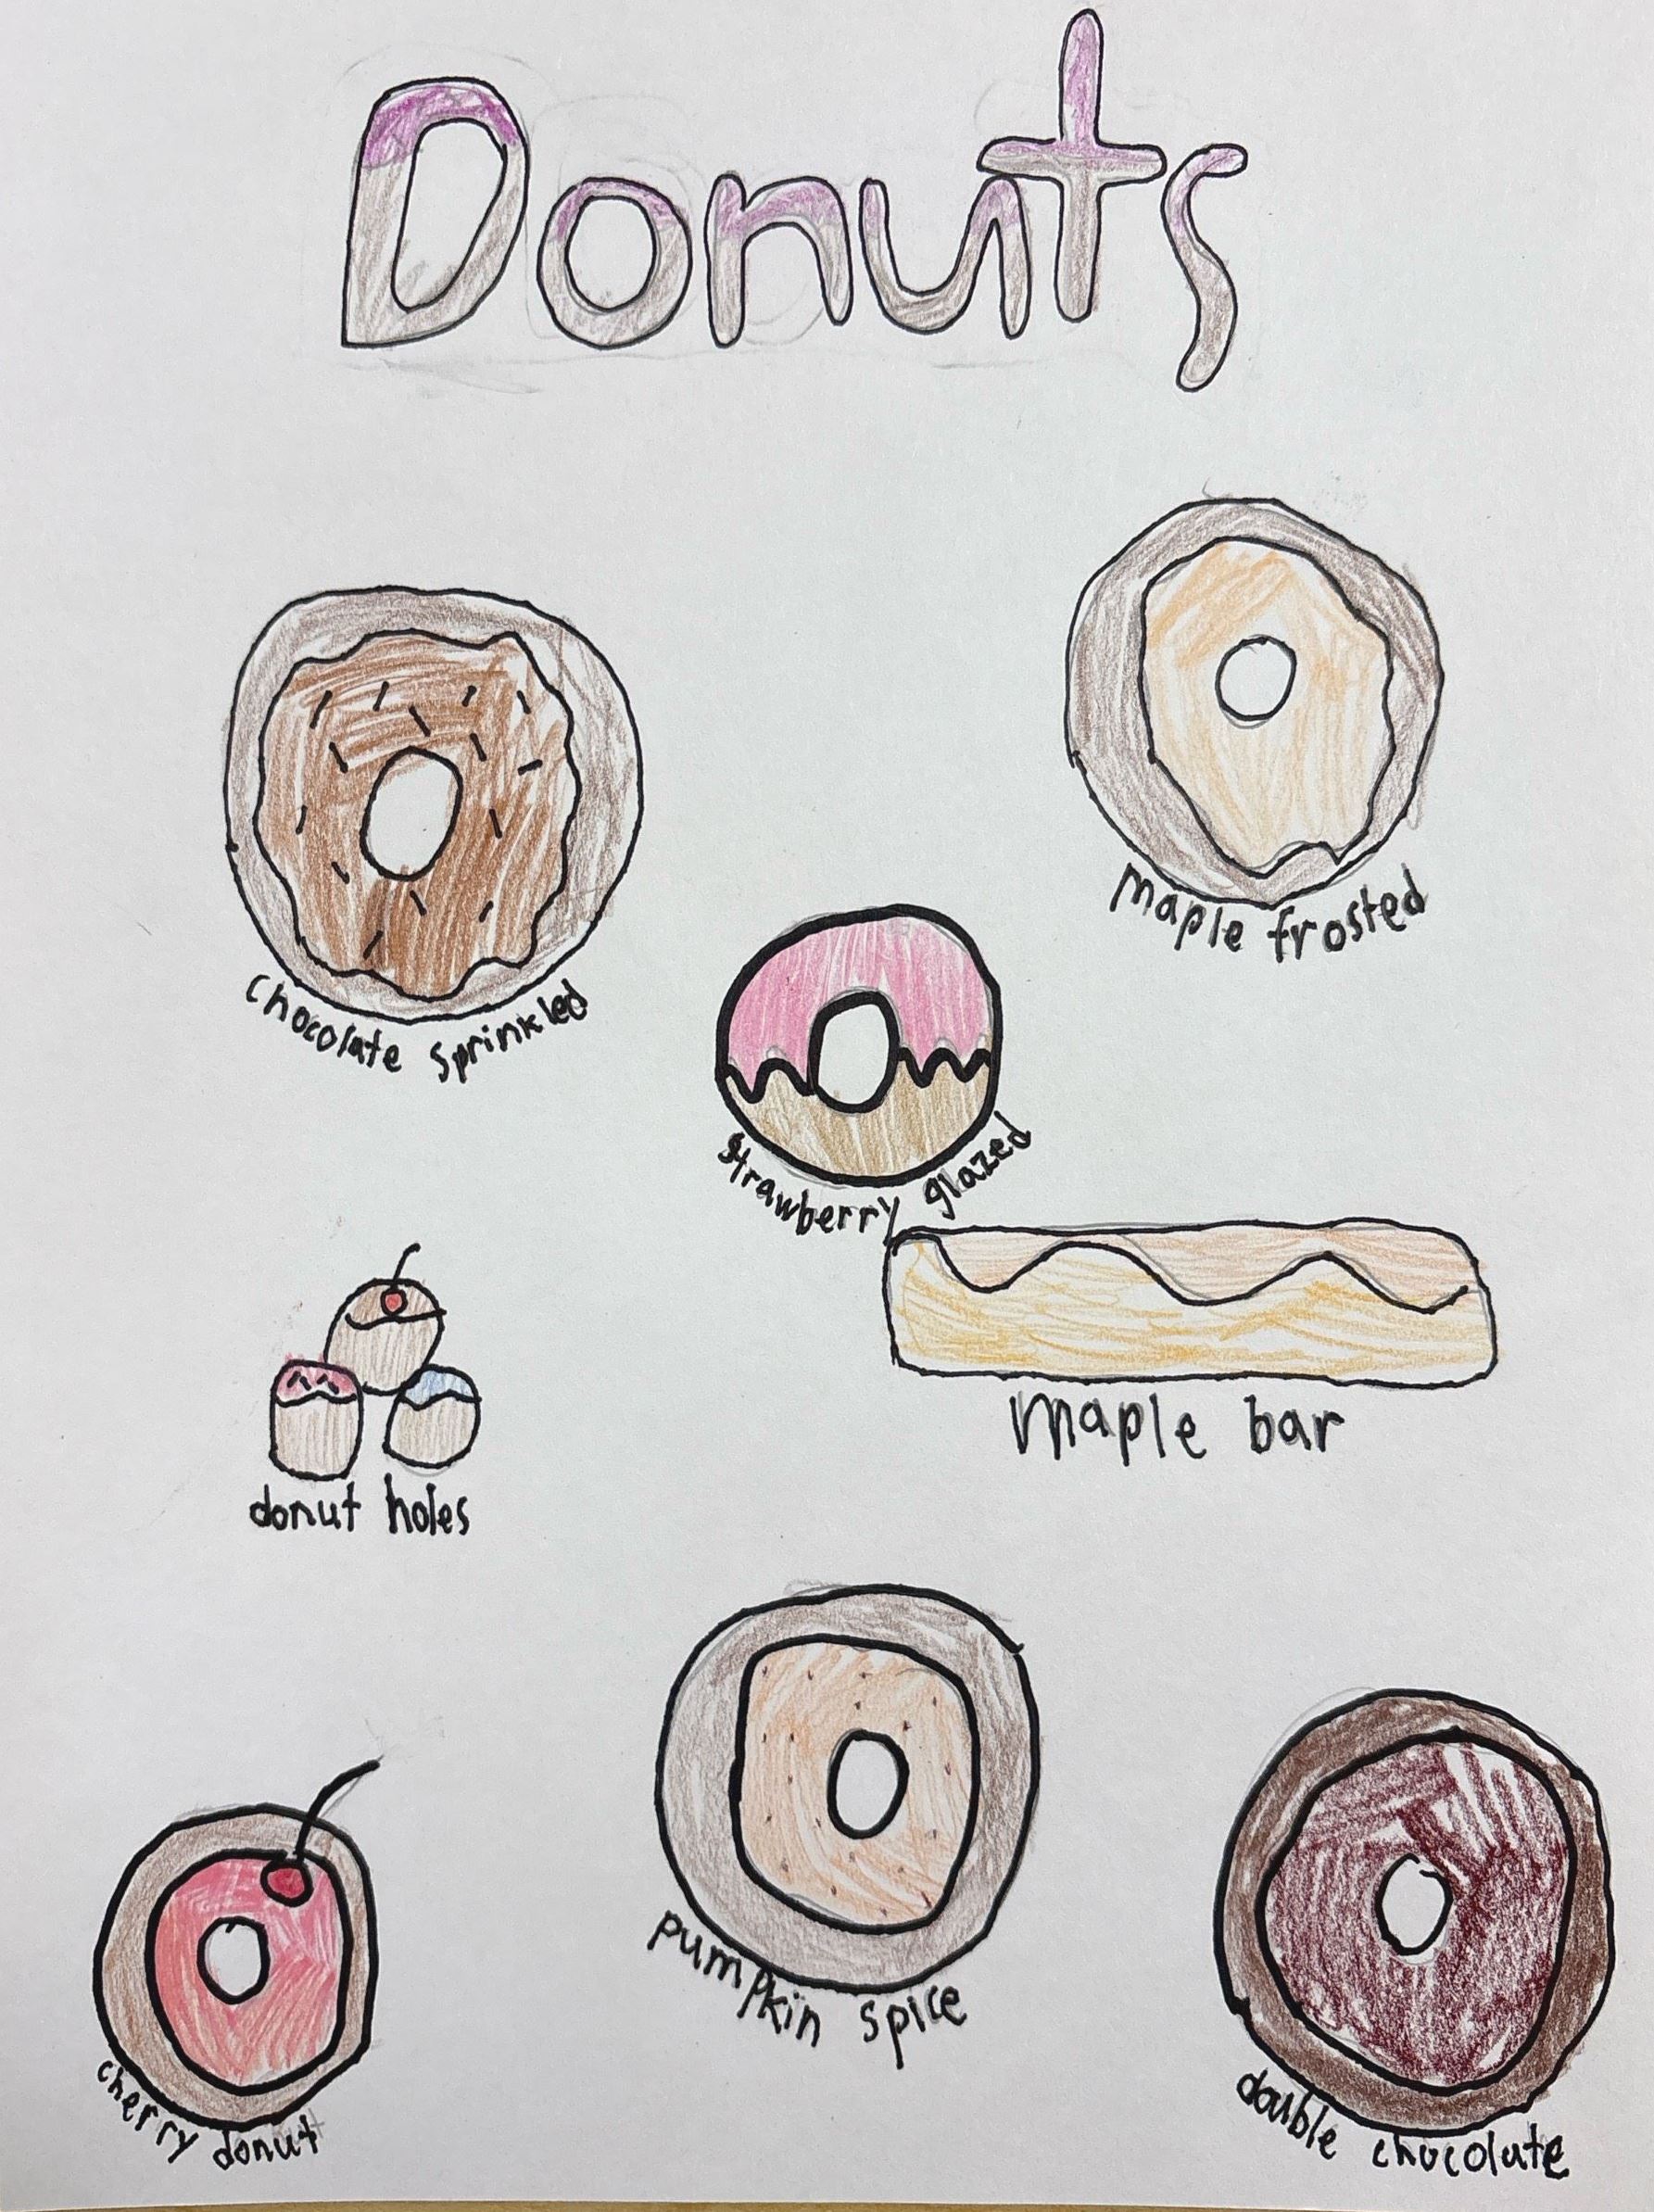 Donuts
maple frosted
chocolate sprinkled
strawberry glazed
maple bar
donut holes
pumpkin spice
cherry donut
double chocolate